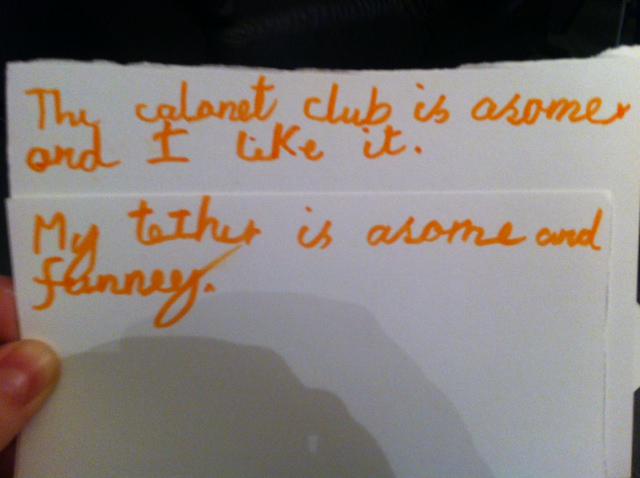 The calanet club is asome
and I like it.
My teIher is asome and
funney.